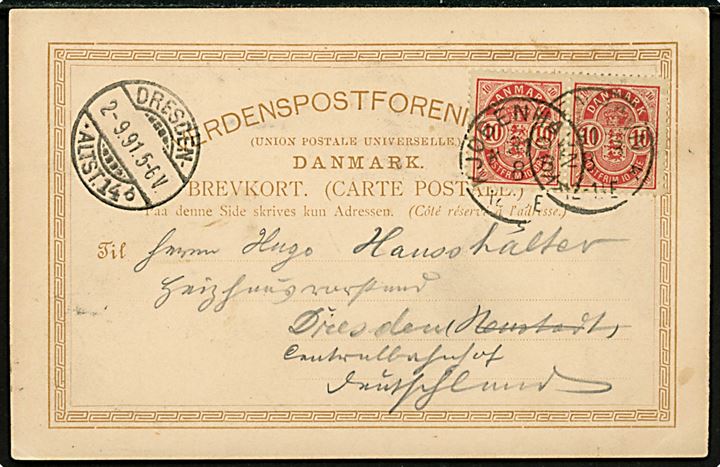 VERDENSPOSTFORENI
(UNION POSTALE UNIVERSELLE)
DANMARK.
BREVKORT. (CARTE POSTALE.)
Paa denne Side skrives kun Adressen. (Côté réservé à l'adresse.)
Til Herrn Hugo Hausshälter
Heizhausvorstand
Dresden (Neustadt,
Centralbahnhof
Deutschland
DRESDEN
2-9.91.5-6V.
ALTST. 14b
DANMARK
10 10
POSTFRIM 10 ØRE
DANMARK
10 10
POSTFRIM 10 ØRE
KJØBENHAVN